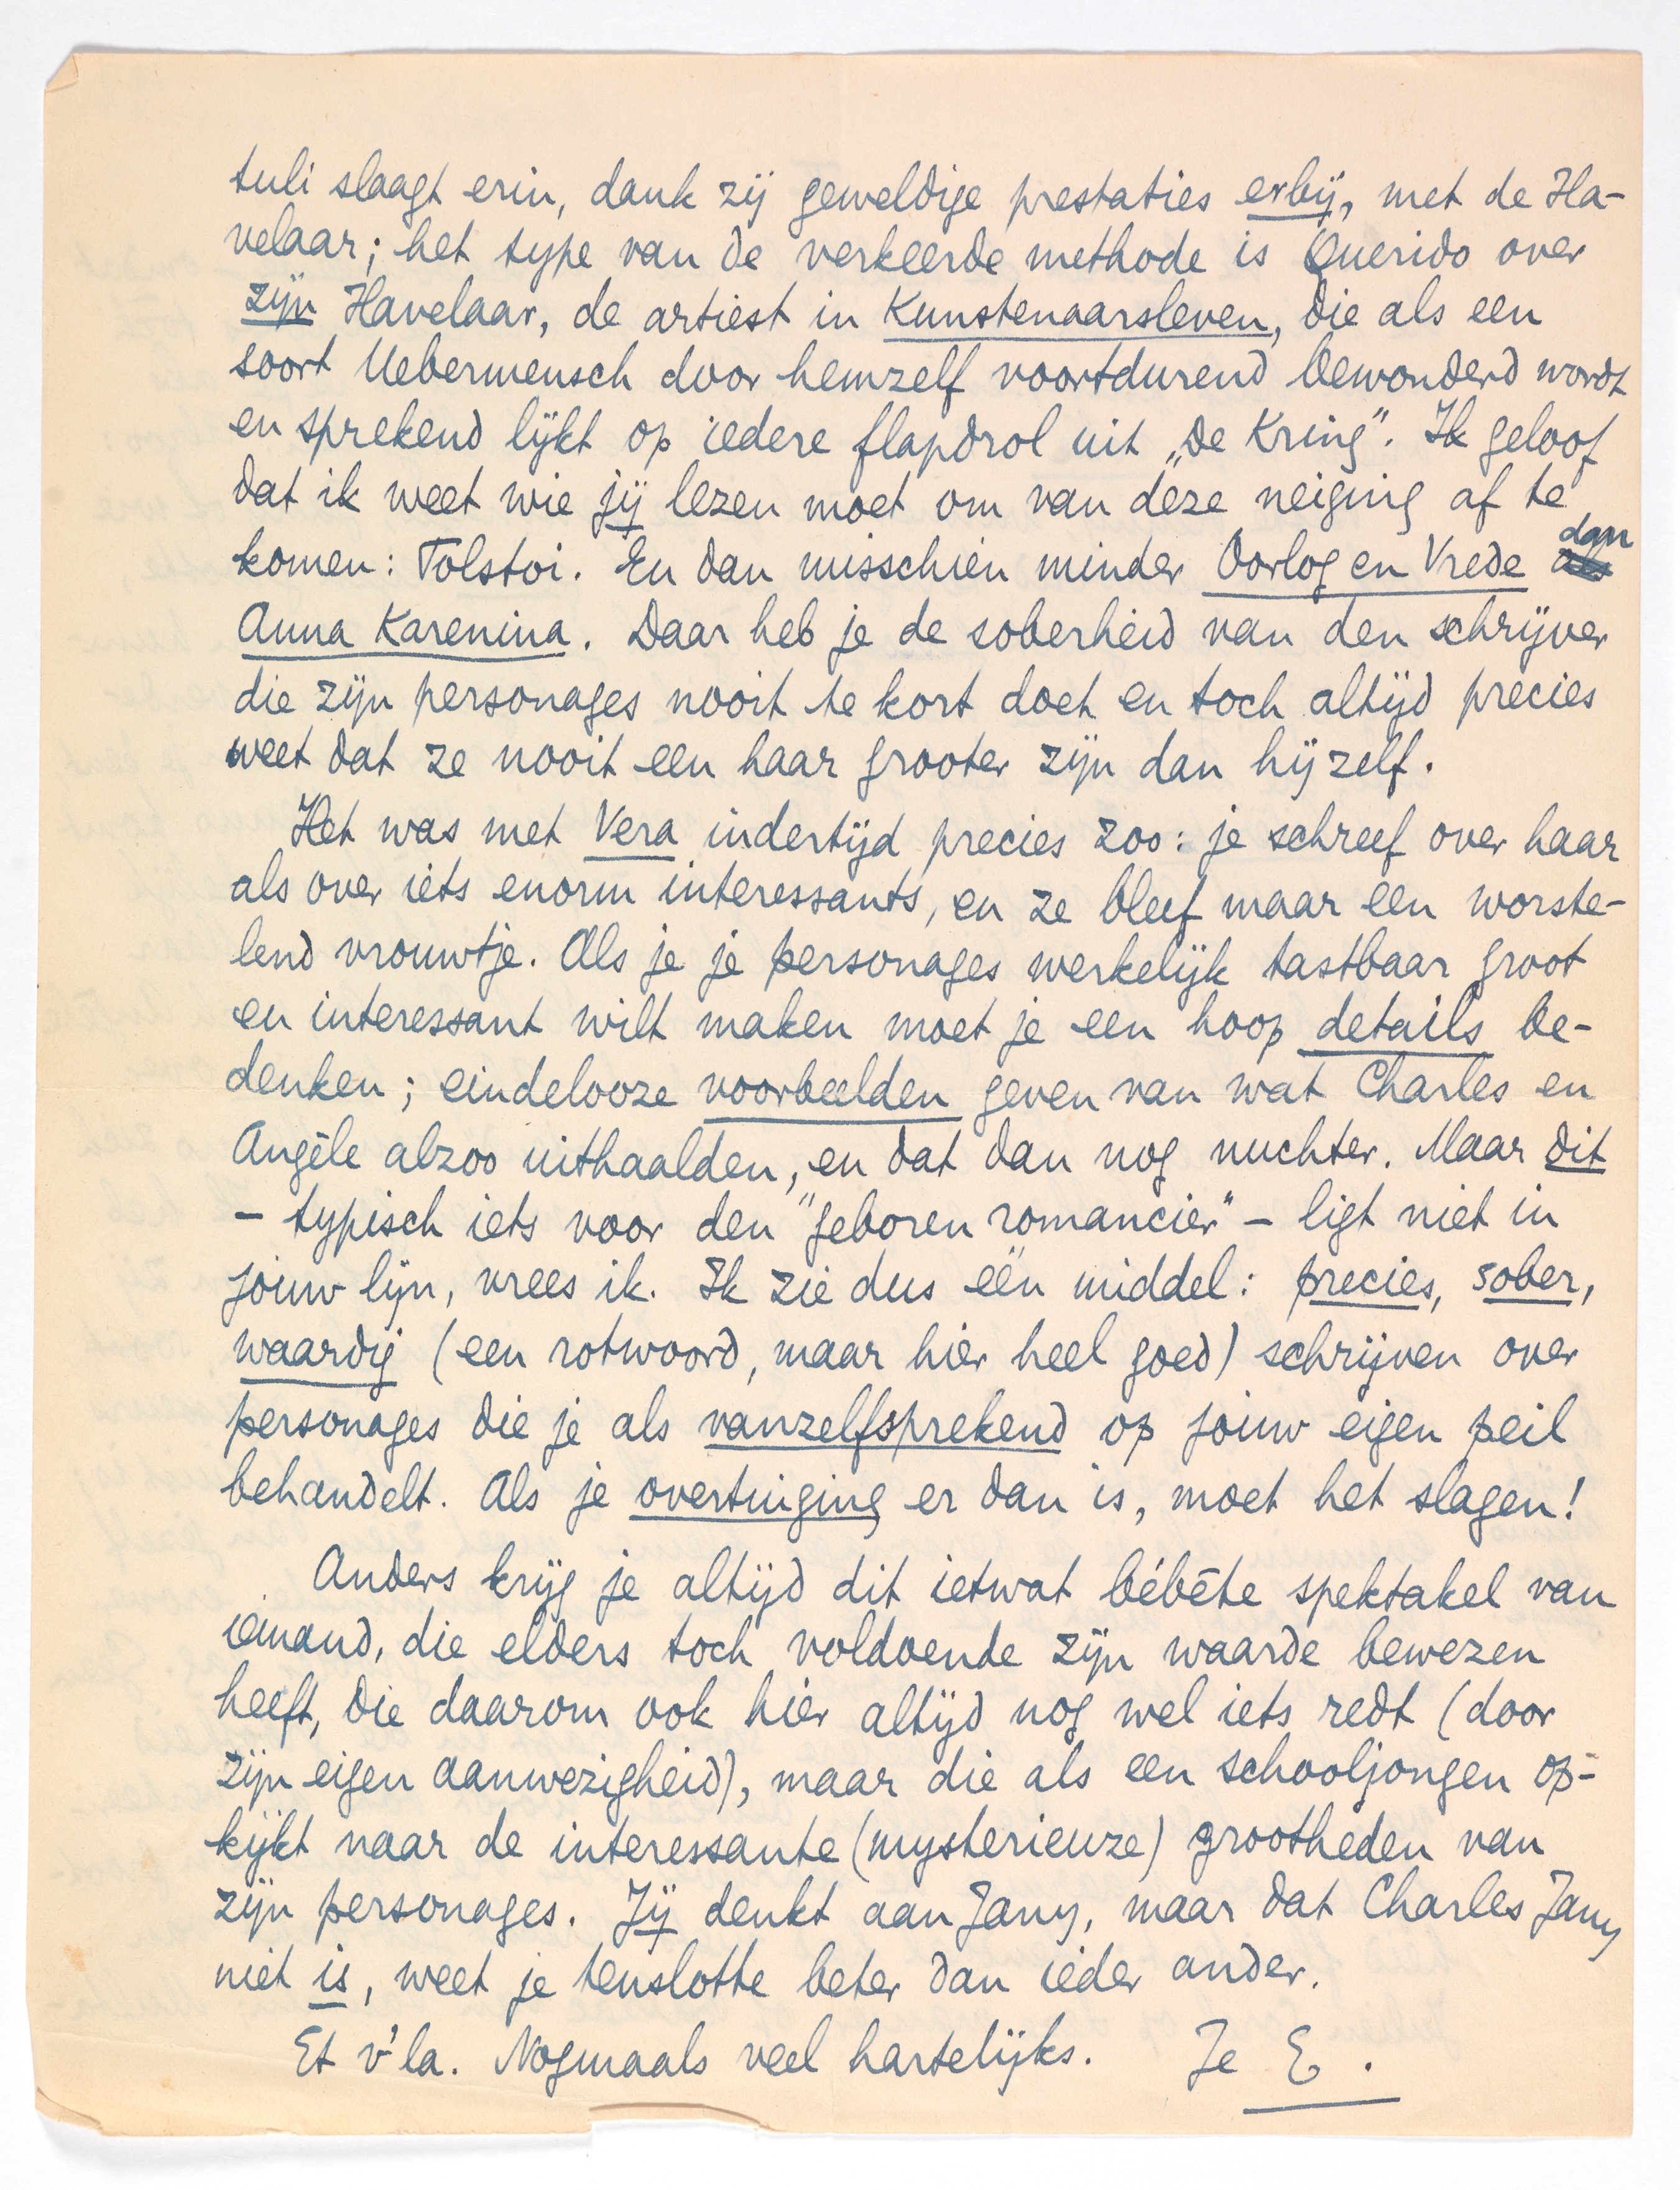 tuli slaagt erin, dank zij geweldige prestaties erbij, met de Ha-
velaar; het type van de verkeerde methode is Querido over
zijn Havelaar, de artiest in Kunstenaarsleven, die als een
soort Uebermensch door hemzelf voortdurend bewonderd wordt
en sprekend lijkt op iedere flapdrol uit „De Kring". Ik geloof
dat ik weet wie jij lezen moet om van deze neiging af te
komen: Tolstoi. En dan misschien minder Oorlog en Vrede ~~als~~ dan
Anna Karenina. Daar heb je de soberheid van den schrijver
die zijn personages nooit te kort doet en toch altijd precies
weet dat ze nooit een haar grooter zijn dan hijzelf.
Het was met Vera indertijd precies zoo: je schreef over haar
als over iets enorm interessants, en ze bleef maar een worste-
lend vrouwtje. Als je je personages werkelijk tastbaar groot
en interessant wilt maken moet je een hoop details be-
denken; eindelooze voorbeelden geven van wat Charles en
Angèle alzoo uithaalden, en dat dan nog nuchter. Maar dit
– typisch iets voor den "geboren romancier" – ligt niet in
jouw lijn, vrees ik. Ik zie dus één middel: precies, sober,
waardig (een rotwoord, maar hier heel goed) schrijven over
personages die je als vanzelfsprekend op jouw eigen peil
behandelt. Als je overtuiging er dan is, moet het slagen!
Anders krijg je altijd dit ietwat bébête spektakel van
iemand, die elders toch voldoende zijn waarde bewezen
heeft, die daarom ook hier altijd nog wel iets redt (door
zijn eigen aanwezigheid), maar die als een schooljongen op-
kijkt naar de interessante (mysterieuze) grootheden van
zijn personages. Jij denkt aan Jany, maar dat Charles Jany
niet is, weet je tenslotte beter dan ieder ander.
Et v'la. Nogmaals veel hartelijks. Je E.